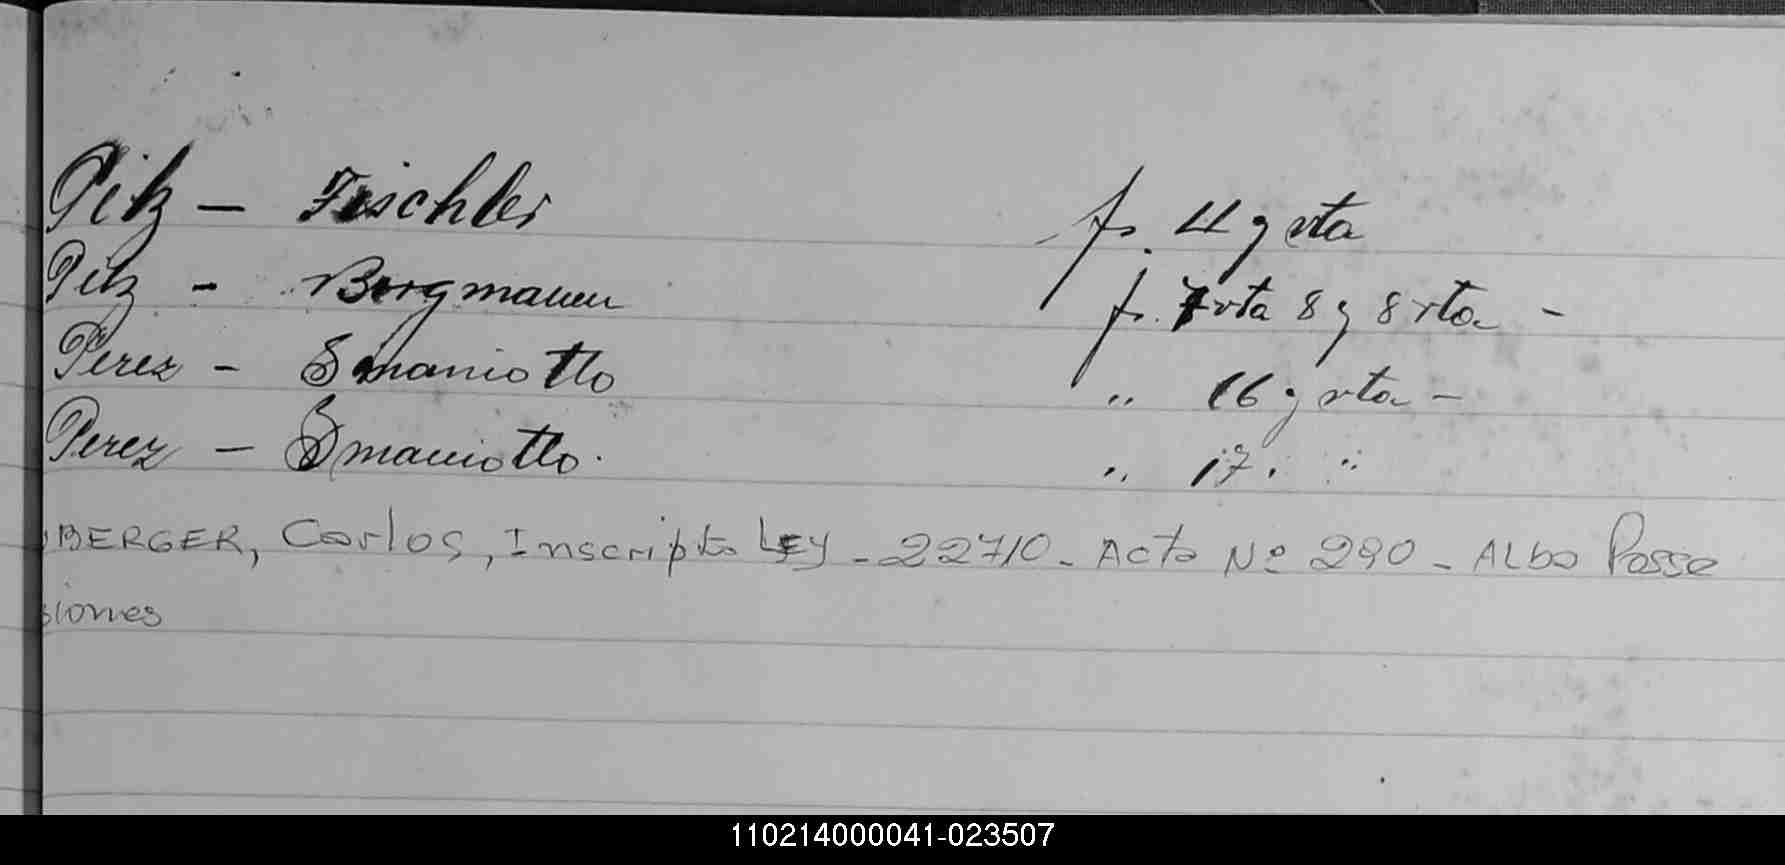 Pilz – Fischler fs. 11 y vta
Pilz – Bergmann fs. 7 vta 8 y 8 vta –
Perez – Smaniotto " 16 y vta –
Perez – Smaniotto. " 17. "
BERGER, Carlos, Inscripto Ley - 22710 - Acta Nº 290 - Alba Posse
siones
110214000041-023507